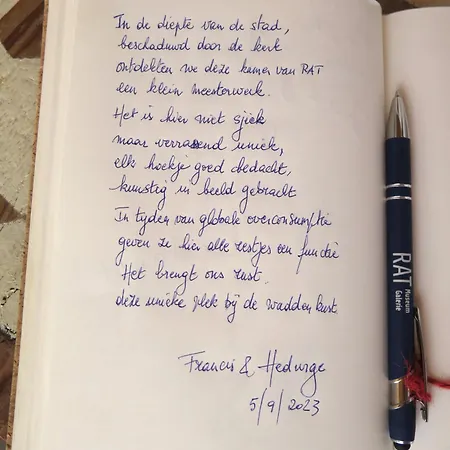 In de diepte van de stad,
beschaduwd door de kerk
ontdekten we deze kamer van RAT
een klein meesterwerk.
Het is hier niet sjiek
maar verrassend uniek,
elk hoekje goed bedacht,
kunstig in beeld gebracht
In tijden van globale overconsumptie
geven ze hier alle restjes een functie
Het brengt ons rust.
deze unieke plek bij de waddenkust.
Francis & Hedwige
5/9/2023
RAT
Museum
Galerie